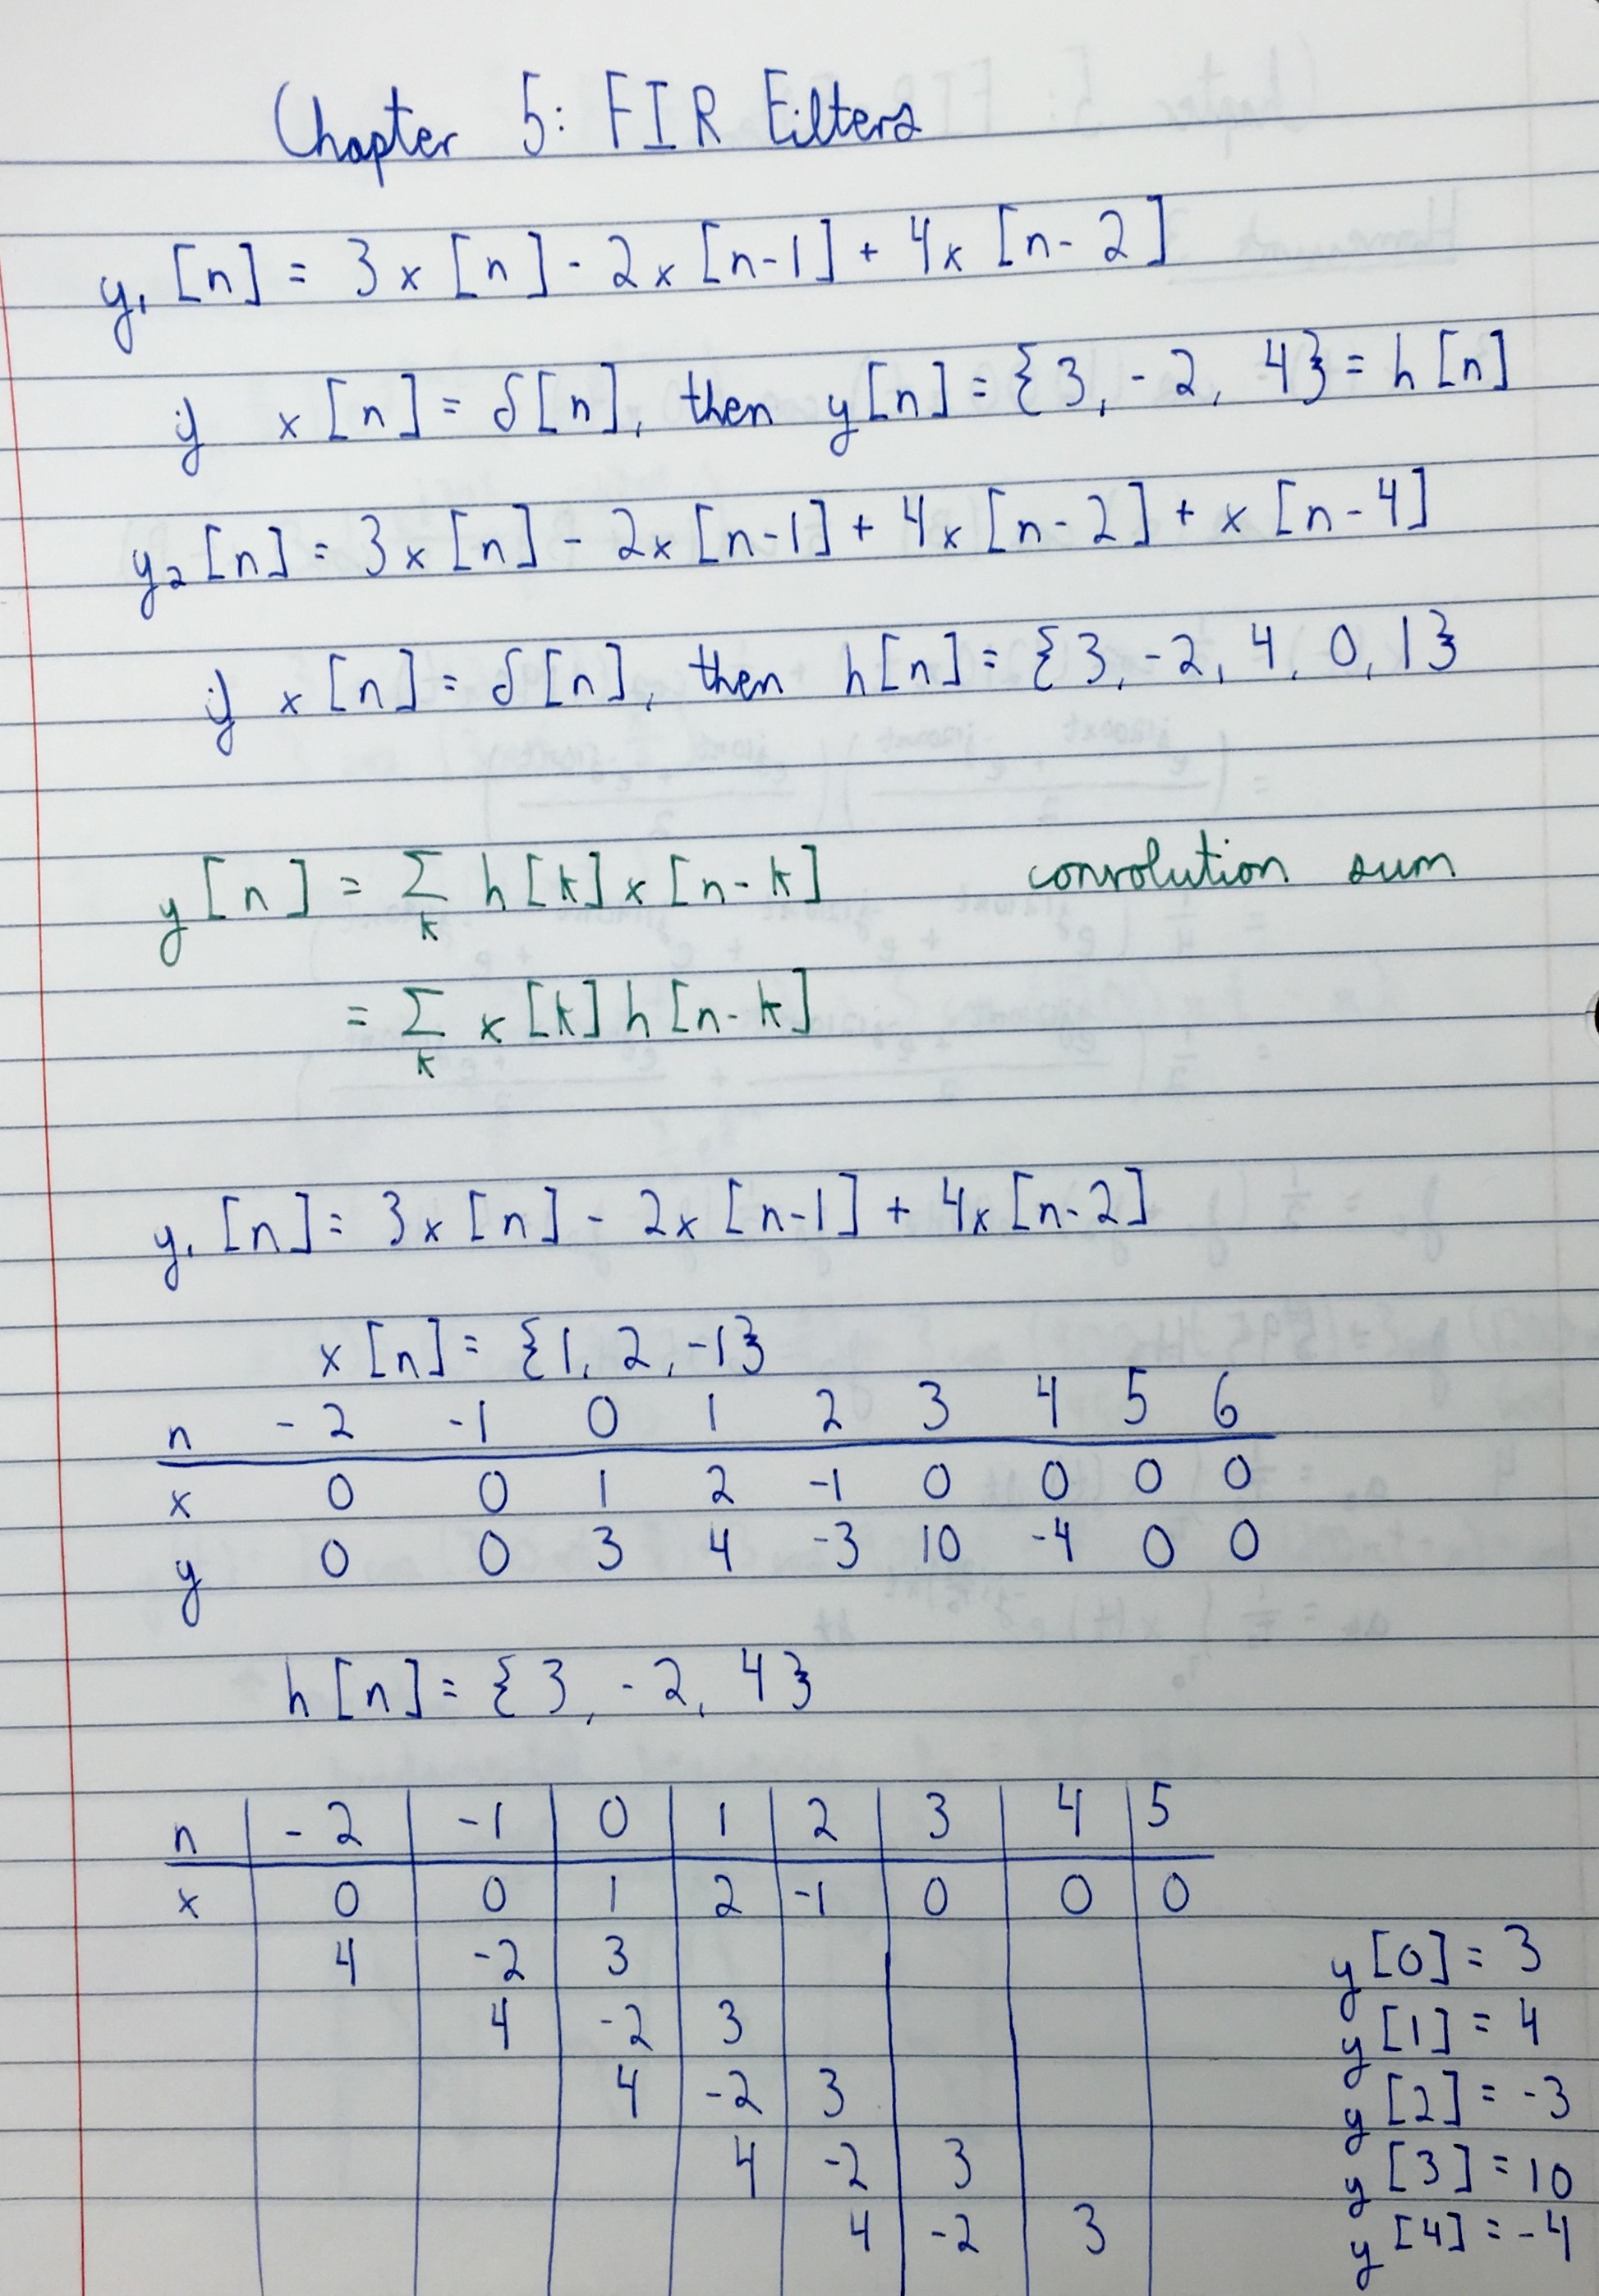 Chapter 5: FIR Filters
y₁[n] = 3x[n] - 2x[n-1] + 4x[n-2]
if x[n] = δ[n], then y[n] = {3, -2, 4} = h[n]
y₂[n] = 3x[n] - 2x[n-1] + 4x[n-2] + x[n-4]
if x[n] = δ[n], then h[n] = {3, -2, 4, 0, 1}
y[n] = Σₖ h[k]x[n-k] convolution sum
= Σₖ x[k]h[n-k]
y₁[n] = 3x[n] - 2x[n-1] + 4x[n-2]
x[n] = {1, 2, -1}
n -2 -1 0 1 2 3 4 5 6
x 0 0 1 2 -1 0 0 0 0
y 0 0 3 4 -3 10 -4 0 0
h[n] = {3, -2, 4}
n -2 -1 0 1 2 3 4 5
x 0 0 1 2 -1 0 0 0
4 -2 3 y[0] = 3
4 -2 3 y[1] = 4
4 -2 3 y[2] = -3
4 -2 3 y[3] = 10
4 -2 3 y[4] = -4